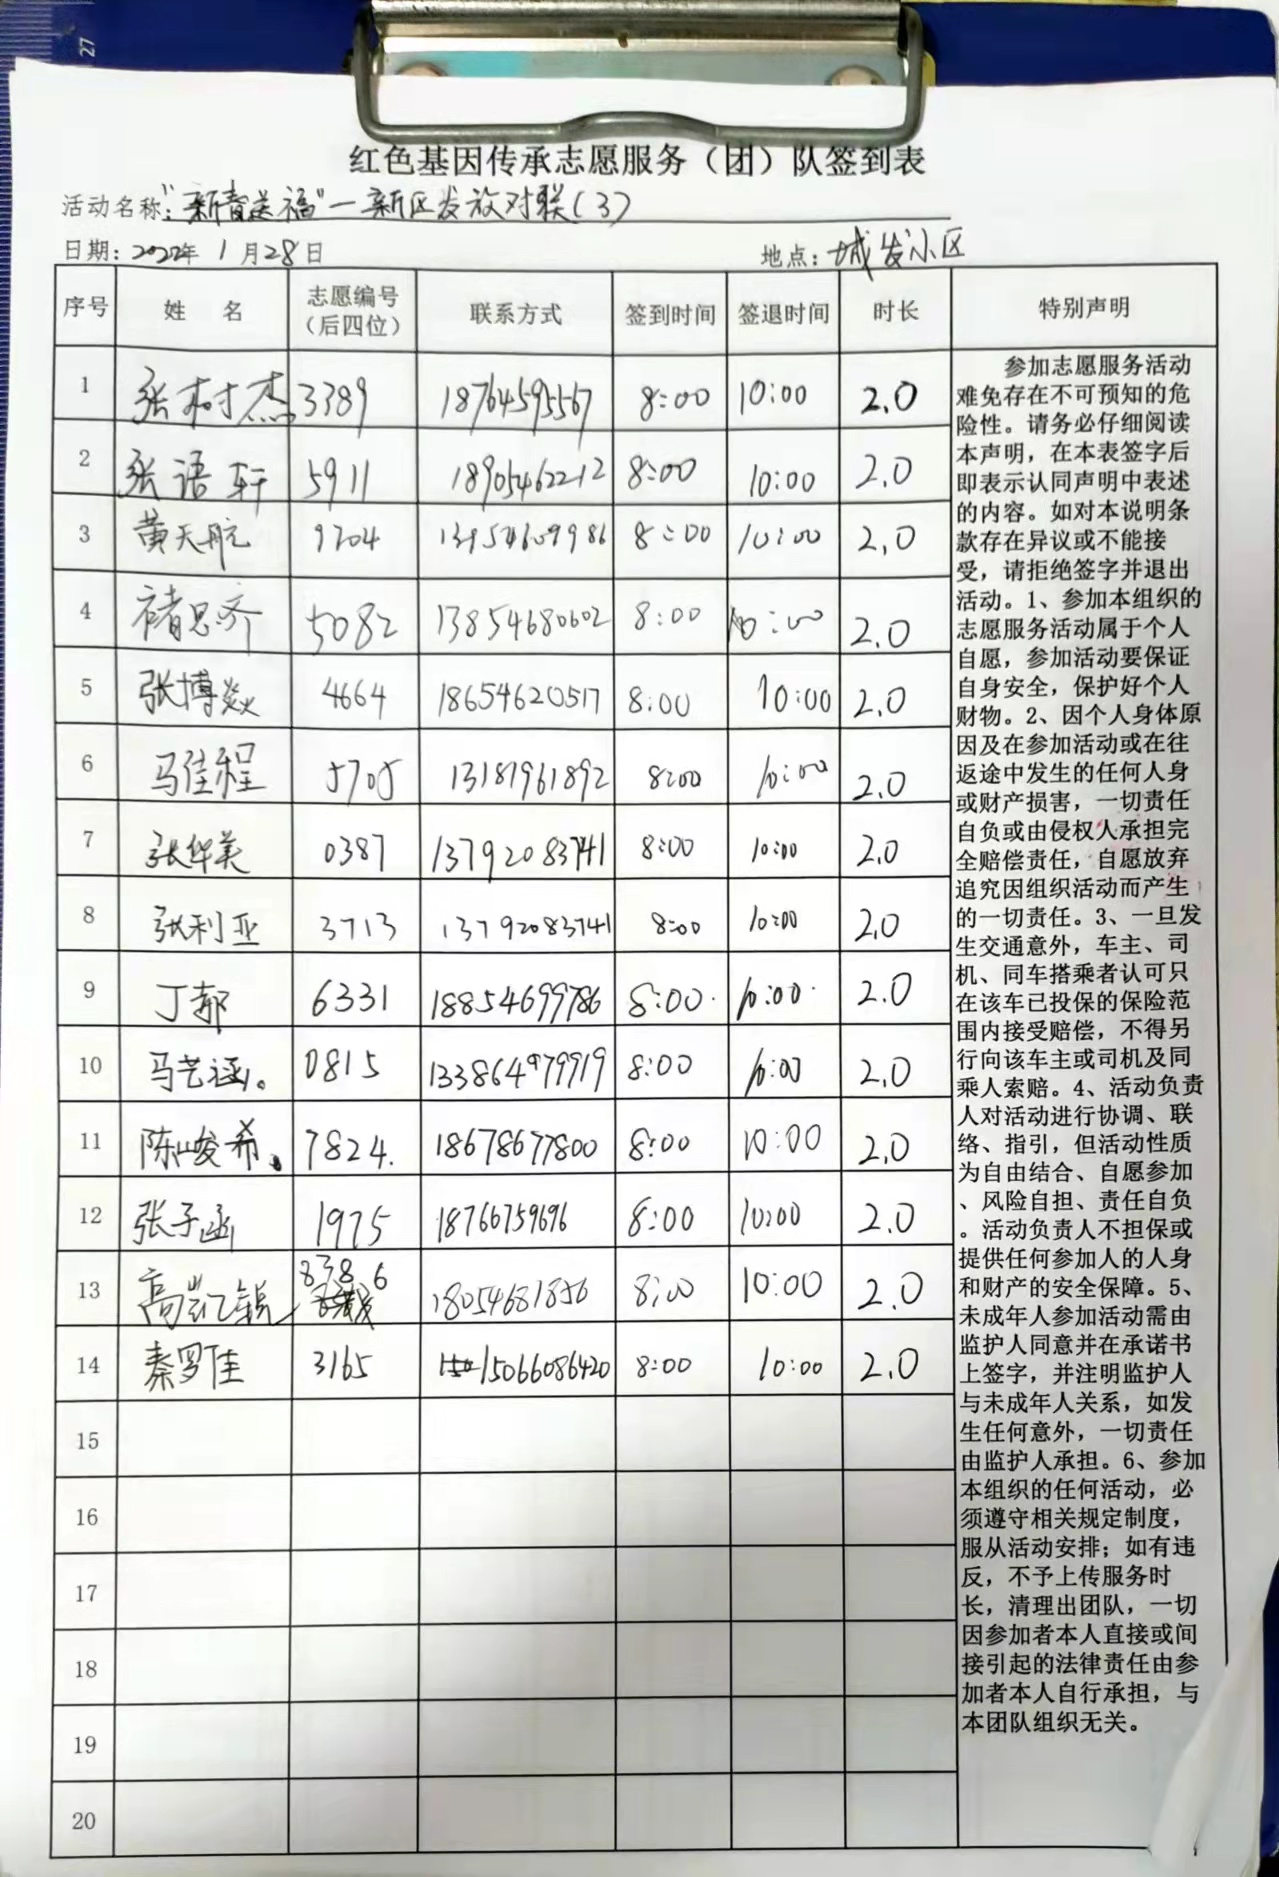 27
红色基因传承志愿服务（团）队签到表
活动名称:"新春送福"一新区发放对联(3)
日期: 2022年 1月28日 地点: 城发小区
序号 姓 名 志愿编号（后四位） 联系方式 签到时间 签退时间 时长 特别声明
1 张树杰 3389 18764595567 8:00 10:00 2.0
2 张语轩 5911 18905462212 8:00 10:00 2.0
3 黄天航 9704 13954609986 8:00 10:00 2.0
4 褚思齐 5082 13854680602 8:00 10:00 2.0
5 张博焱 4664 18654620517 8:00 10:00 2.0
6 马佳程 5705 13181961892 8:00 10:00 2.0
7 张华美 0387 13792083741 8:00 10:00 2.0
8 张利亚 3713 13792083741 8:00 10:00 2.0
9 丁郝 6331 18854699786 8:00 10:00 2.0
10 马艺涵。 0815 133864979919 8:00 10:00 2.0
11 陈峻希 7824. 18678677800 8:00 10:00 2.0
12 张子涵 1975 18766759696 8:00 10:00 2.0
13 高凯锐 8386 18054681856 8:00 10:00 2.0
14 秦罗佳 3165 15066086420 8:00 10:00 2.0
15
16
17
18
19
20
参加志愿服务活动
难免存在不可预知的危
险性。请务必仔细阅读
本声明，在本表签字后
即表示认同声明中表述
的内容。如对本说明条
款存在异议或不能接
受，请拒绝签字并退出
活动。1、参加本组织的
志愿服务活动属于个人
自愿，参加活动要保证
自身安全，保护好个人
财物。2、因个人身体原
因及在参加活动或在往
返途中发生的任何人身
或财产损害，一切责任
自负或由侵权人承担完
全赔偿责任，自愿放弃
追究因组织活动而产生
的一切责任。3、一旦发
生交通意外，车主、司
机、同车搭乘者认可只
在该车已投保的保险范
围内接受赔偿，不得另
行向该车主或司机及同
乘人索赔。4、活动负责
人对活动进行协调、联
络、指引，但活动性质
为自由结合、自愿参加
、风险自担、责任自负
。活动负责人不担保或
提供任何参加人的人身
和财产的安全保障。5、
未成年人参加活动需由
监护人同意并在承诺书
上签字，并注明监护人
与未成年人关系，如发
生任何意外，一切责任
由监护人承担。6、参加
本组织的任何活动，必
须遵守相关规定制度，
服从活动安排；如有违
反，不予上传服务时
长，清理出团队，一切
因参加者本人直接或间
接引起的法律责任由参
加者本人自行承担，与
本团队组织无关。